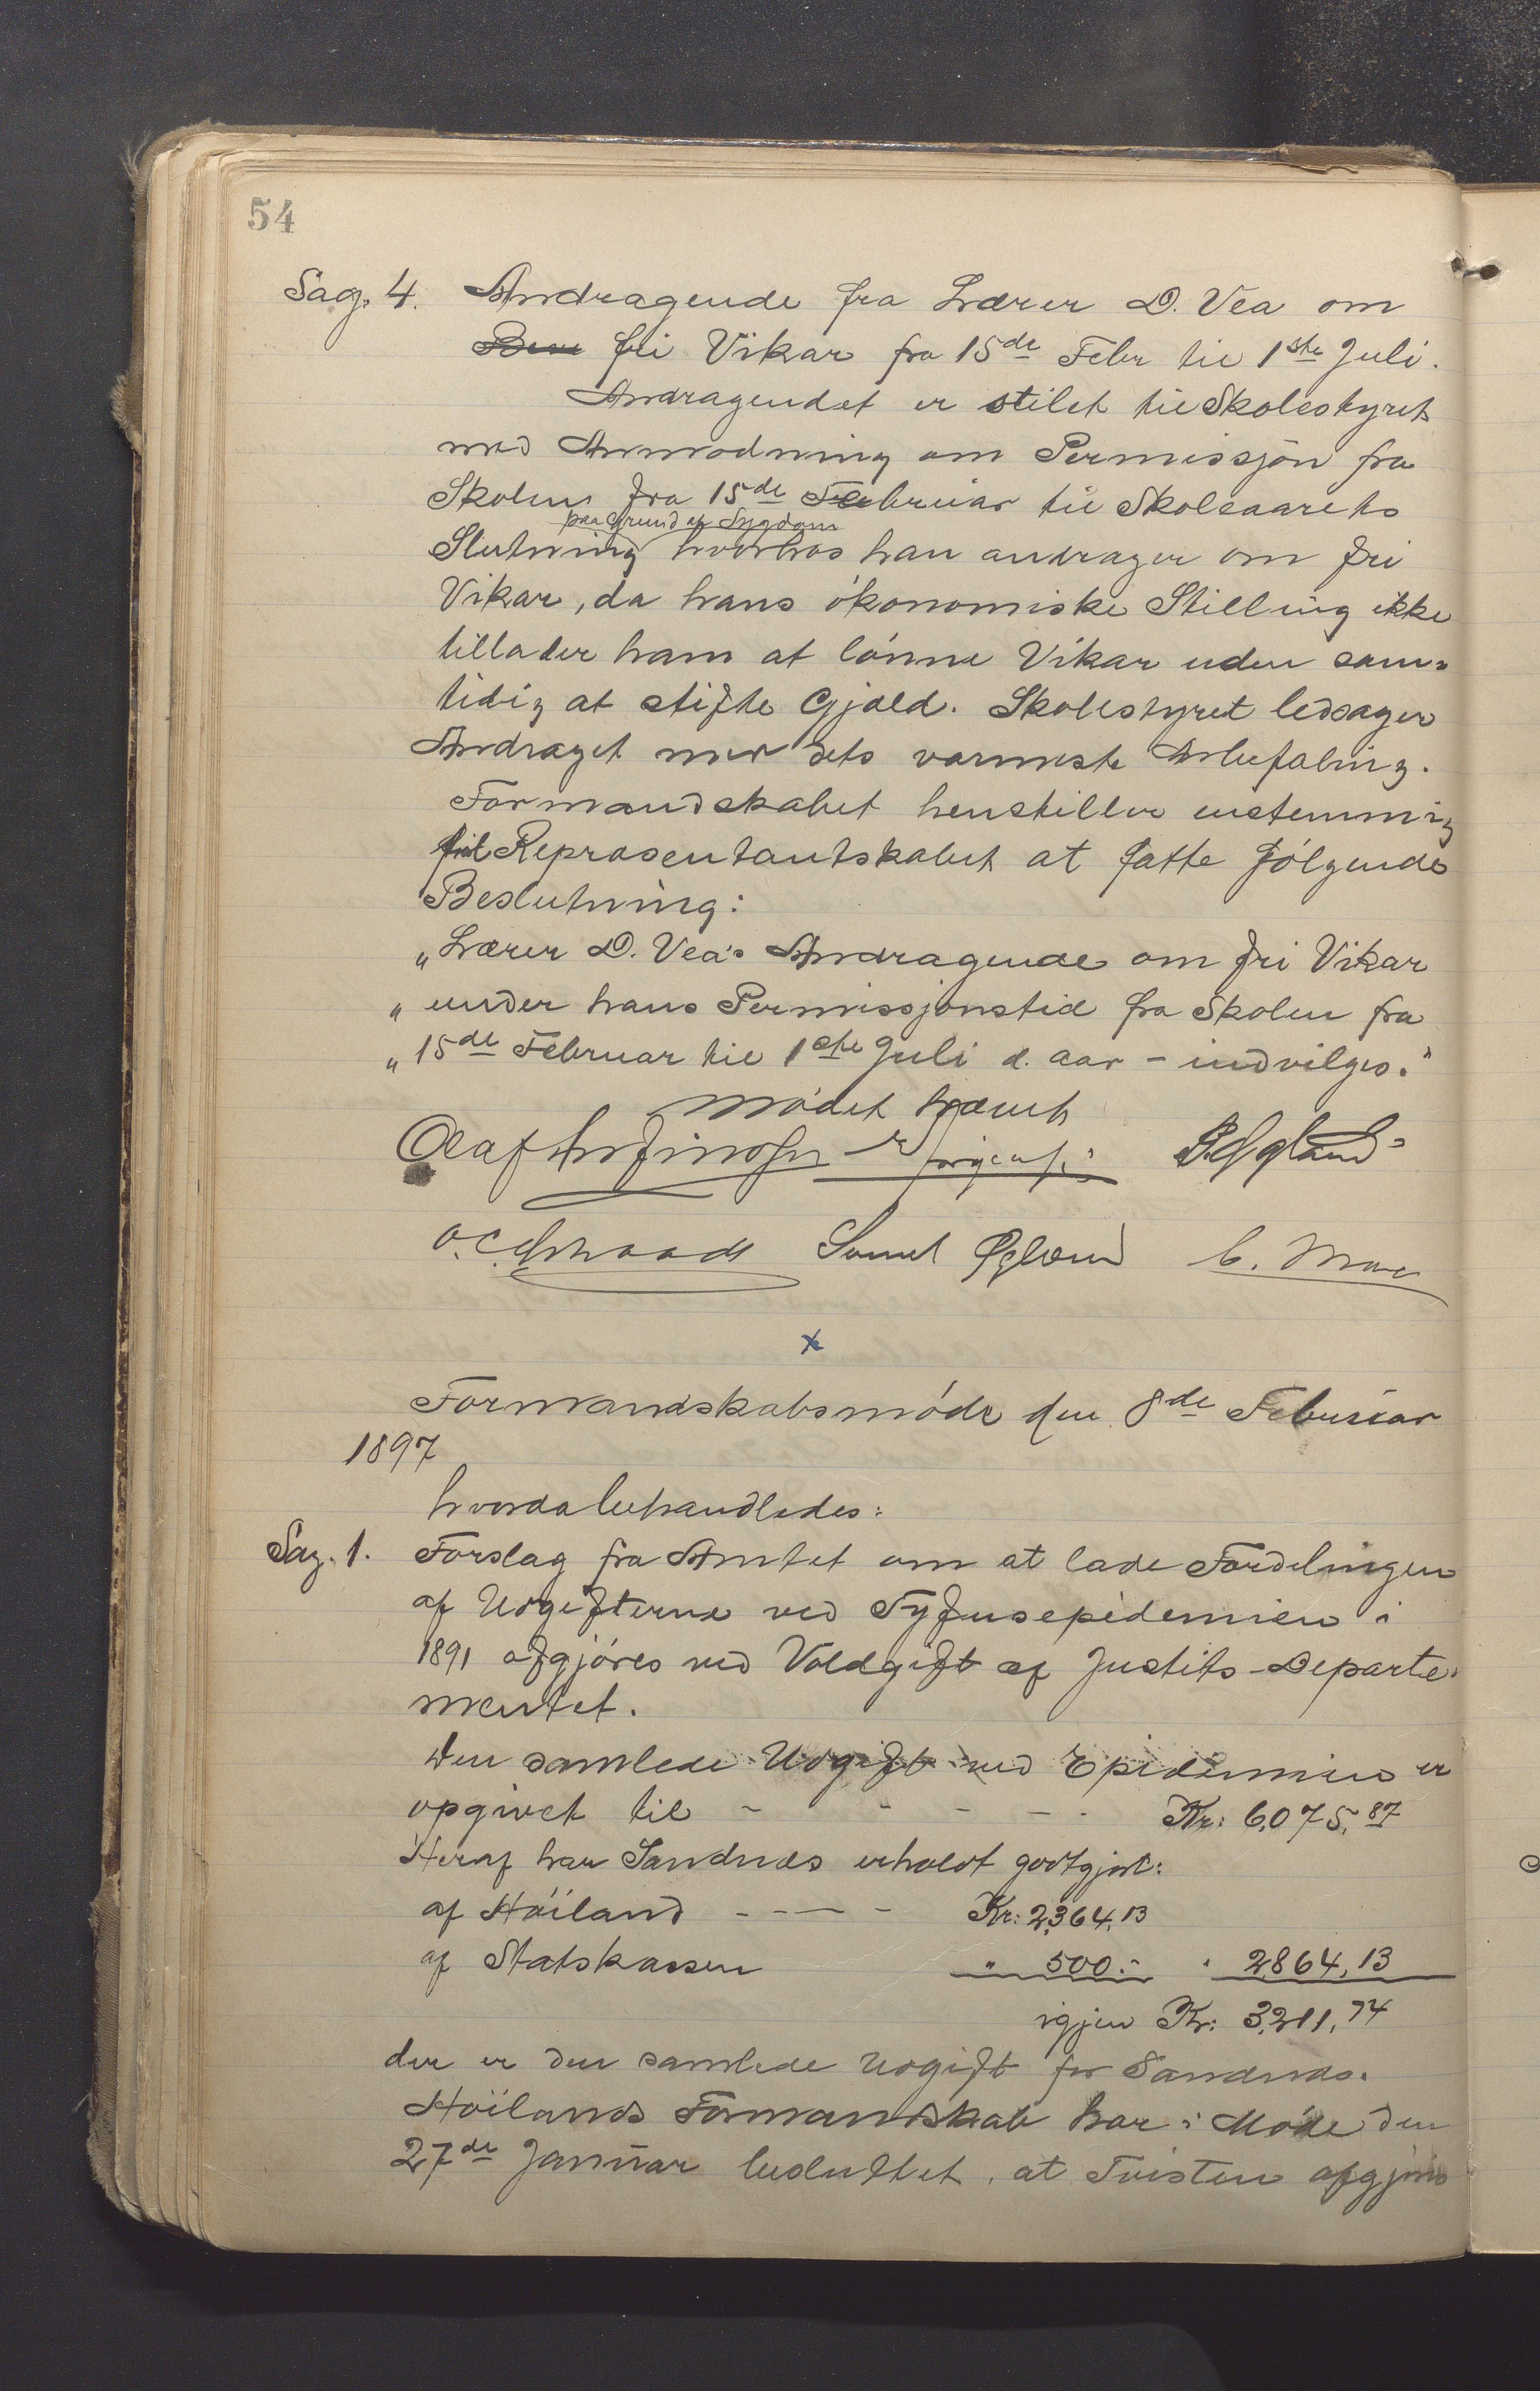 54
Sag. 4. Andragende fra Lærer D. Vea om
fri Vikar fra 15de Febr til 1ste Juli.
Andragendet er stilet til Skolestyret
med Anmodning om Permissjon fra
Skolen fra 15de Februar til Skoleaarets
paa Grund af Sygdom
Slutning hvorhos han andrager om fri
Vikar, da hans ökonomiske Stilling ikke
tillader ham at lönne Vikar uden sam=
tidig at stifte Gjæld. Skolestyret ledsager
Andraget med dets varmeste Anbefaling.
Formandskabet henstiller enstemmig
til Repræsentantskabet at fatte fölgende
Beslutning:
„Lærer D. Vea's Andragende om fri Vikar
„under hans Permissjonstid fra Skolen fra
„15de Februar til 1ste Juli d. aar - indvilges."
Mödet hævet
Samuel Øglænd
x
Formandskabsmöde den 8de Februar
1897
hvorda behandledes:
Sag. 1. Forslag fra Amtet om at lade Fordelingen
af Udgifterne ved Tyfusepidemien i
1891 afgjöres ved Voldgift af Justits-Departe-
mentet.
Den samlede Udgift ved Epidemien er
opgivet til - - - - - Kr: 6,075,87
Heraf har Sandnæs erholdt godtgjort:
af Höiland - - - - Kr: 2,364,13
af Statskassen " 500.- " 2,864,13
igjen Kr: 3,211,74
der er den samlede Udgift for Sandnæs.
Höilands Formandskab har i Möde den
27de Januar besluttet, at Tvisten afgjöres